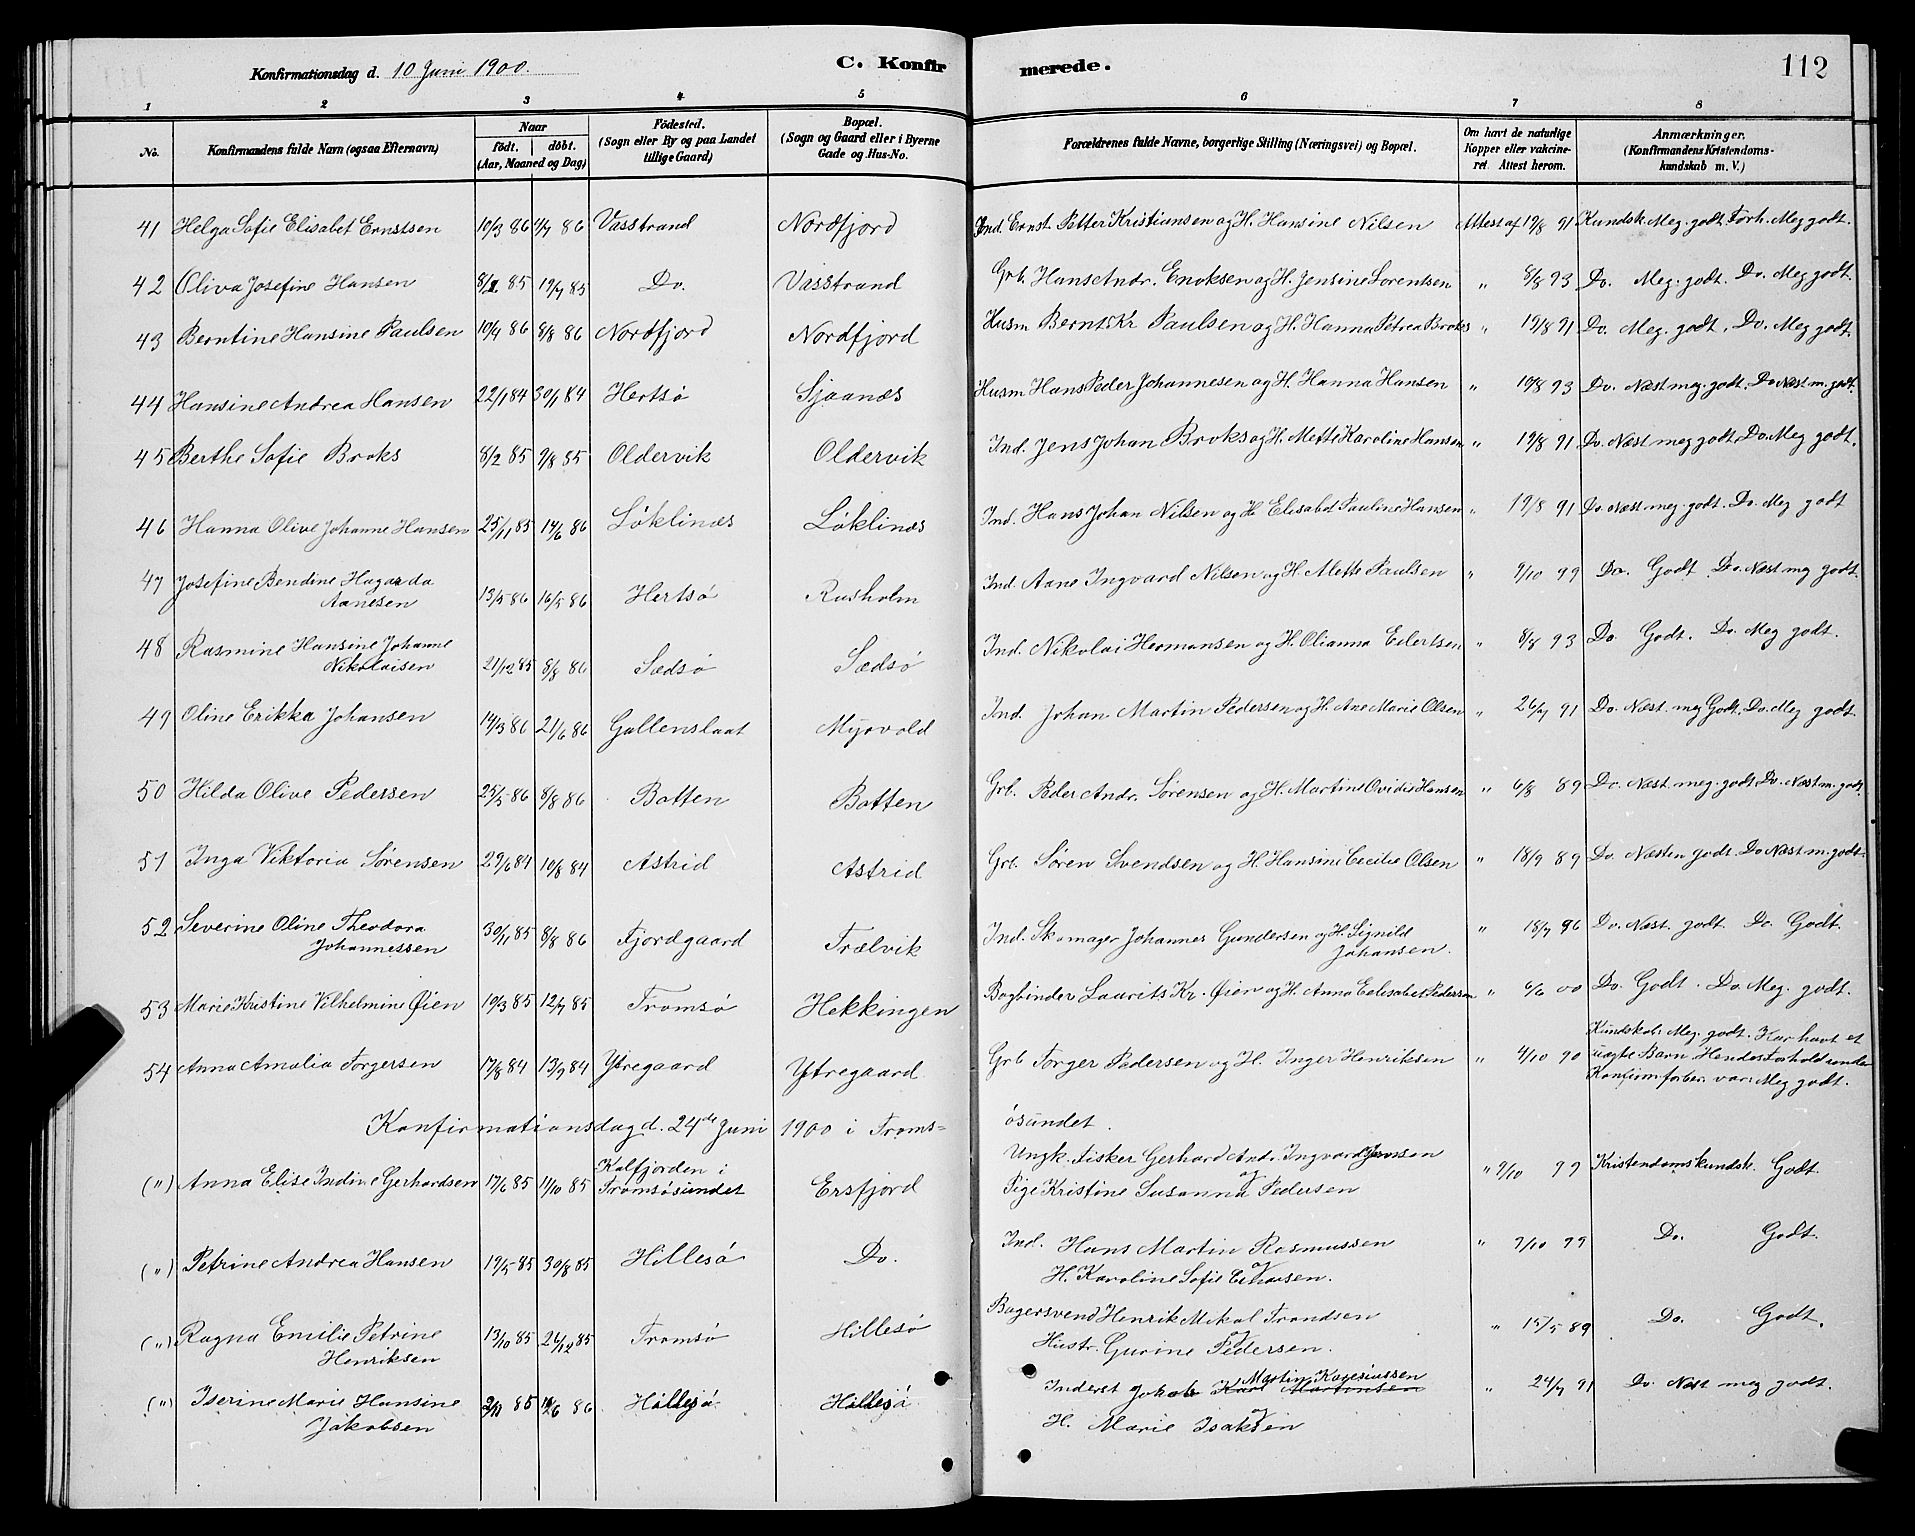 Konfirmationsdag d. 10 Juni 1900. C. Konfirmerede. 112
1 2 3 4 5 6 7 8
No. Konfirmandens fulde Navn (ogsaa Efternavn) Naar født. døbt. (Aar, Maaned og Dag) Fødested. (Sogn eller By og paa Landet tillige Gaard) Bopæl. (Sogn og Gaard eller i Byerne Gade og Hus-No. Forældrenes fulde Navne, borgerlige Stilling (Næringsvei) og Bopæl. Om havt de naturlige Kopper eller vakcineret. Attest herom. Anmærkninger. (Konfirmandens Kristendomskundskab m. V.)
41 Helga Sofie Elisabet Ernstsen 10/3 86 4/7 86 Vasstrand Nordfjord Ind. Ernst Petter Kristiansen og H. Hansine Nilsen Attest af 19/8 91 Kundsk. Meg. godt. Forh. Meg godt.
42 Oliva Josefine Hansen 85 19/7 85 Do. Vasstrand Grb. Hans Andr. Enoksen og H. Jensine Sorentsen " 8/8 93 Do. Meg. godt. Do. Meg godt.
43 Berntine Hansine Paulsen 10/4 86 8/8 86 Nordfjord Nordfjord Husm Bernt Kr Paulsen og H. Hanna Petrea Broks " 19/8 91 Do. Meg. godt, Do. Meg godt.
44 Hansine Andrea Hansen 22/1 84 30/1 84 Hertsø Sjaanæs Husm Hans Peder Johannesen og H. Hanna Hansen " 19/8 93 Do. Næst meg. godt. Do Næst m. godt.
45 Berthe Sofie Broks 8/2 85 9/8 85 Oldervik Oldervik Ind. Jens Johan Broks og H. Mette Karoline Hansen " 19/8 91 Do. Næst meg godt. Do. Meg godt.
46 Hanna Olive Johanne Hansen 25/11 85 14/6 86 Løklinæs Løklinæs Ind. Hans Johan Nilsen og H Elisabet Pauline Hansen " 19/8 91 Do Næst meg. godt. Do. Meg godt
47 Josefine Bendine Hagarda Aanesen 13/5 86 16/5 86 Hertsø Rusholm Ind. Aane Ingvard Nilsen og H. Mette Paulsen " 9/10 99 Do. Godt Do. Næst meg godt.
48 Rasmine Hansine Johanne Nikolaisen 21/12 85 8/8 86 Sædsø Sædsø Ind. Nikolai Hermansen og H. Olianna Eilertsen " 8/8 93 Do Godt. Do. Meg godt.
49 Oline Erikka Johansen 14/3 86 21/6 86 Gallenslaat Myrvold Ind. Johan Martin Pedersen og H. Ane Marie Olsen " 26/7 91 Do. Næst. meg Godt. Do. Meg godt.
50 Hilda Olive Pedersen 25/5 86 8/8 86 Botten Botten Grb. Peder Andr. Sørensen og H. Martine Ovidie Hansen " 6/8 89 Do. Næst. meg. godt Do. Næst m. godt.
51 Inga Viktoria Sørensen 29/6 84 10/8 84 Astrid Astrid Grb. Søren Svendsen og H. Hansine Cecilie Olsen " 18/9 89 Do. Næsten godt. Do Næst m. godt.
52 Severine Oline Theodora Johannessen 30/1 85 8/8 86 Fjordgaard Trælvik Ind. Skomager Johannes Gundersen og H. Signild Johansen. " 18/7 96 Do. Næst. godt. Do. Godt.
53 Marie Kristine Vilhelmine Øien 19/3 85 12/7 85 Tromsø Hekkingen Bogbinder Laurits Kr. Øien og H. Anna Eelisabet Pedersen " 6/6 00 Do. Godt. Do. Meg. godt.
54 Anna Amalia Torgersen 17/8 84 13/9 84 Ytregaard Ytregaard Grb Torger Pedersen og H. Inger Henriksen " 4/10 90 Kundskab: Meg. godt. Har havt et uægte Barn Hendes Forhold under Konfirm.forber. var: Meg godt.
Konfirmationsdag d. 24de Juni 1900 i Tromsøsundet.
(") Anna Elise Indine Gerhardsen 17/6 85 11/10 85 Kalfjorden i Tromsøsundet Ersfjord Ungk. Fisker Gerhard Andr. Ingvard Jensen og Pige Kristine Susanna Pedersen " 9/10 99 Kristendomskundsk. Godt.
(") Petrine Andrea Hansen 19/5 85 30/8 85 Hillesø Do. Ind. Hans Martin Rasmussen og H. Karoline Sofie " 9/10 99 Do. Godt.
(") Ragna Emilie Petrine Henriksen 13/10 85 26/12 85 Tromsø Hillesø Bagersvend Henrik Mikal Trondsen og Hustr. Gurine Pedersen. " 15/5 89 Do. Godt.
(") Iserine Marie Hansine Jakobsen 85 86 Hillesø Hillesø Inderst Jakob Karl Martinsen Martin Kagesiussen og H. Marie Isaksen " 24/7 91 Do. Næst meg godt.